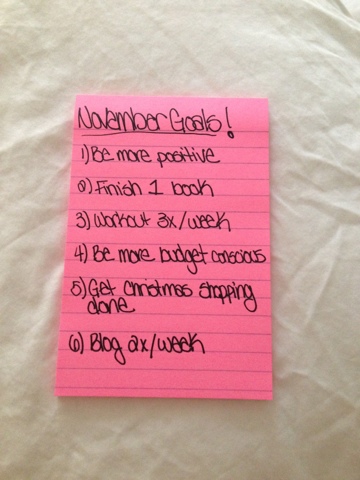 November Goals!
1) Be more positive
2) Finish 1 book
3) Workout 3x/week
4) Be more budget conscious
5) Get Christmas shopping
done
6) Blog 2x/week